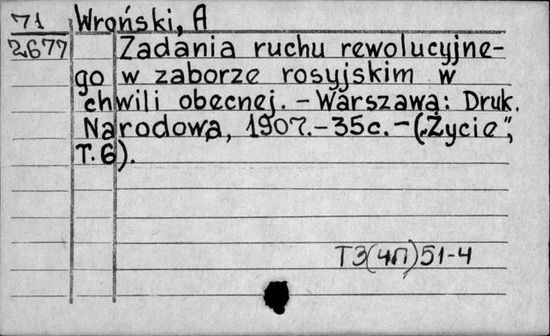 71 Wroński, A
2677 Zadania ruchu rewolucyjne-
go w zaborze rosyjskim w
chwili obecnej. – Warszawa: Druk.
Narodowa, 1907. – 35c. – („Życie”,
T. 6).
T3(4П)51-4